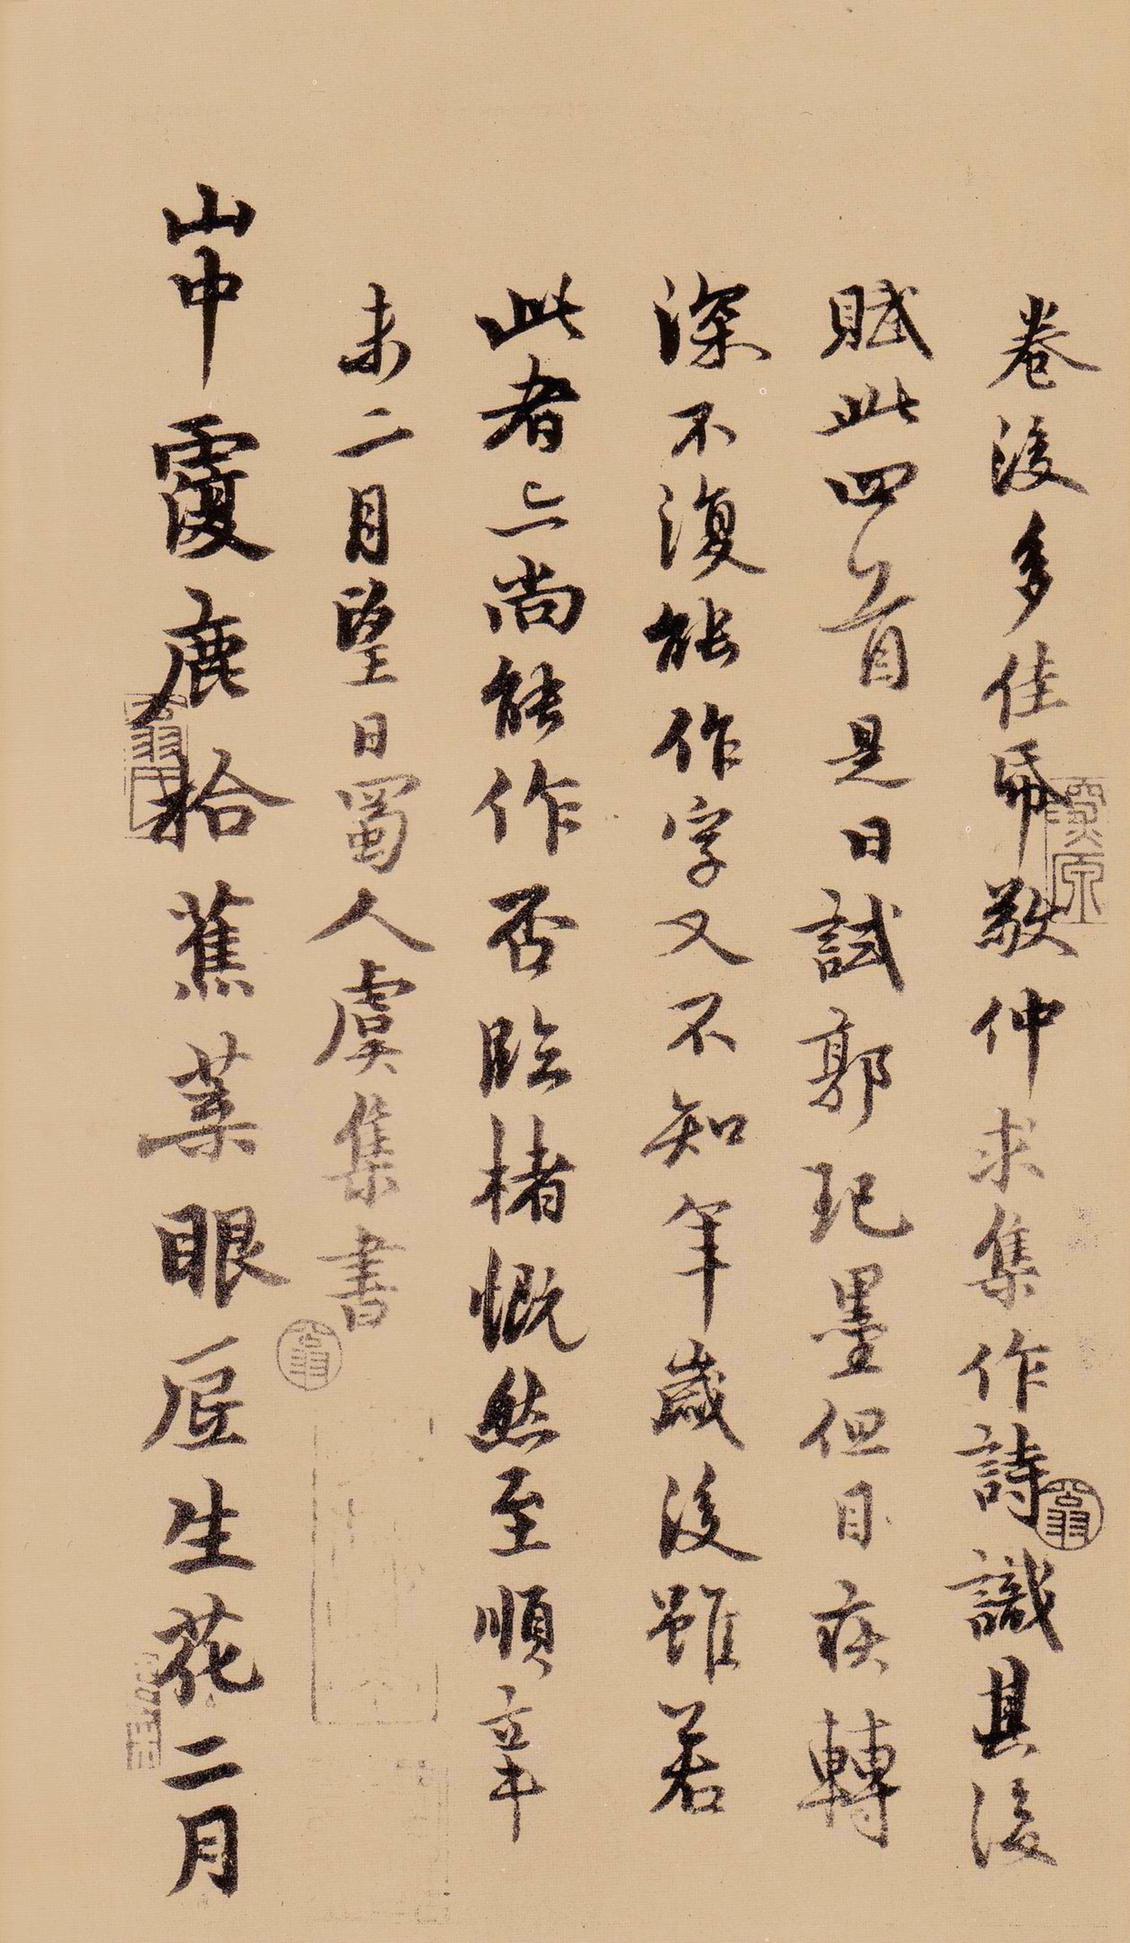 卷後多佳帋敬仲求集作詩識其後
賦此四首是日試郭玘墨但目疾轉
深不復能作字又不知年歲後雖若
此者亡尚能作否臨楮慨然至順辛
未二月望日蜀人虞集書
山中覆鹿拾蕉葉眼底生花二月